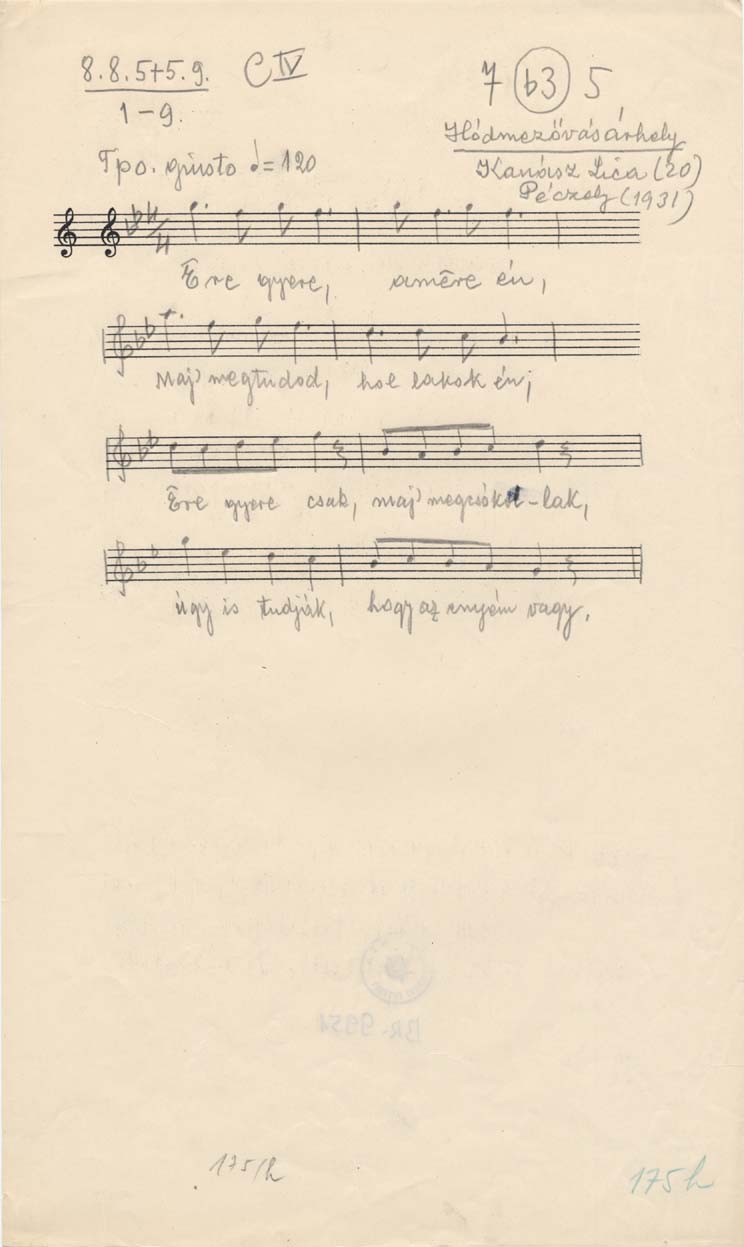 8.8.5+5.9. C IV
1-9.
7 (b3) 5
Hódmezővásárhely
Kanász Lica (20)
Péczely (1931)
Tpo. giusto = 120
4/4
Ēre gyere, amēre én,
Maj' megtudod, hol lakok én;
Ēre gyere csak, maj' megcsókol-lak,
úgy is tudják, hogy az enyém vagy.
BR-9951
175/h
175h